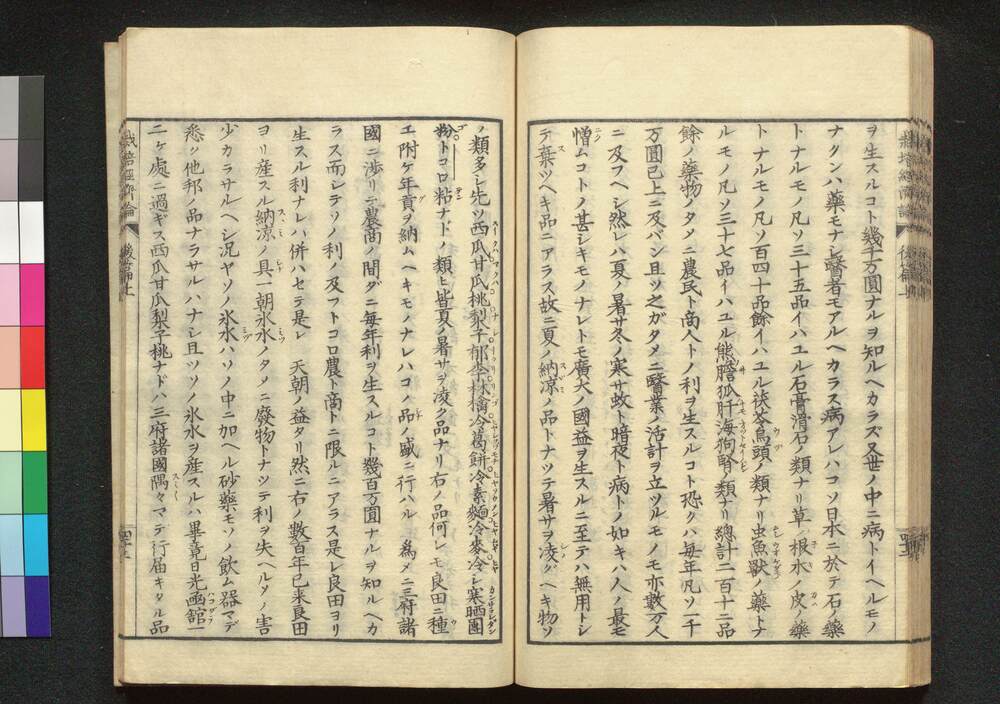 ヲ生スルコト幾千万圓ナルヲ知ルヘカラズ又世ノ中ニ病トイヘルモノ
ナクンハ藥モナシ醫者モアルヘカラス病アレハコソ日本ニ於テ石ノ藥
トナルモノ凡ソ三十五品イハユル石膏滑石ノ類ナリ草ノ根木ノ皮ノ藥
トナルモノ凡ソ百四十品餘イハユル茯苓烏頭ノ類ナリ虫魚獸ノ藥トナ
ルモノ凡ソ三十七品イハユル熊膽狐肝海狗腎ノ類ナリ總計二百十二品
餘ノ藥物ノタメニ農民ト商人トノ利ヲ生スルコト恐クハ毎年凡ソ一千
万圓已上ニ及バン且ツ之ガタメニ醫業ノ活計ヲ立ツルモノモ亦數万人
ニ及フヘシ然レハ夏ノ暑サ冬ノ寒サ蚊ト暗夜ト病トノ如キハ人ノ最モ
憎ムコトノ甚シキモノナレトモ廣大ノ國益ヲ生スルニ至テハ無用トシ
テ棄ツヘキ品ニアラス故ニ夏ノ納凉ノ品トナツテ暑サヲ凌グヘキ物ソ
ノ類多シ先ツ西瓜甘瓜桃梨子郁李林檎冷葛餅冷素麵冷麥冷シ寒晒團
粉トコロ粘ナドノ類ヒ皆夏ノ暑サヲ凌ク品ナリ右ノ品何レモ良田ニ種
エ附ケ年貢ヲ納ムヘキモノナレハコノ品ノ盛ニ行ハル丶爲メニ三府諸
國ニ渉リテ農商ノ間ダニ毎年利ヲ生スルコト幾百万圓ナルヲ知ルヘカ
ラス而シテソノ利ノ及フトコロ農ト商トニ限ルニアラス是レ良田ヨリ
生スル利ナレハ併ハセテ是レ 天朝ノ益タリ然ニ右ノ數百年已来良田
ヨリ産スル納凉ノ具一朝氷水ノタメニ廢物トナツテ利ヲ失ヘルソノ害
少カラサルヘシ况ヤソノ氷水ハソノ中ニ加ヘル砂藥モソノ飲ム器マデ
悉ク他邦ノ品ナラサルハナシ且ツソノ氷水ヲ産スルハ畢竟日光凾舘一
二ケ處ニ過ギス西瓜甘瓜梨子桃ナドハ三府諸國隅々マデ行届キタル品
栽培經濟論
後篇上